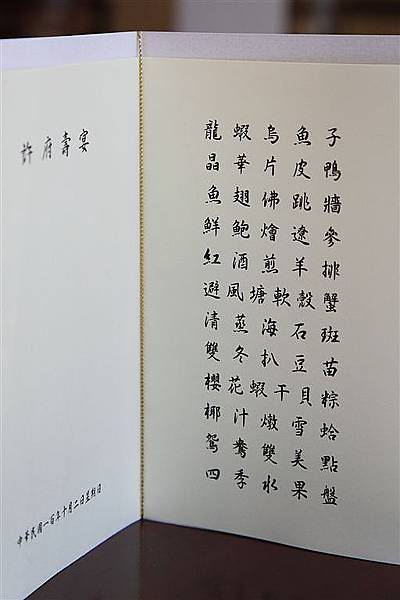 許府壽宴
中華民國一百年十月二日星期日
龍蝦烏魚子
晶華片皮鴨
魚翅佛跳牆
鮮鮑燴遼參
紅酒煎羊排
避風塘軟殼蟹
清蒸海石斑
雙冬扒豆苗
櫻花蝦干貝粽
椰汁燉雪蛤
鴛鴦雙美點
四季水果盤